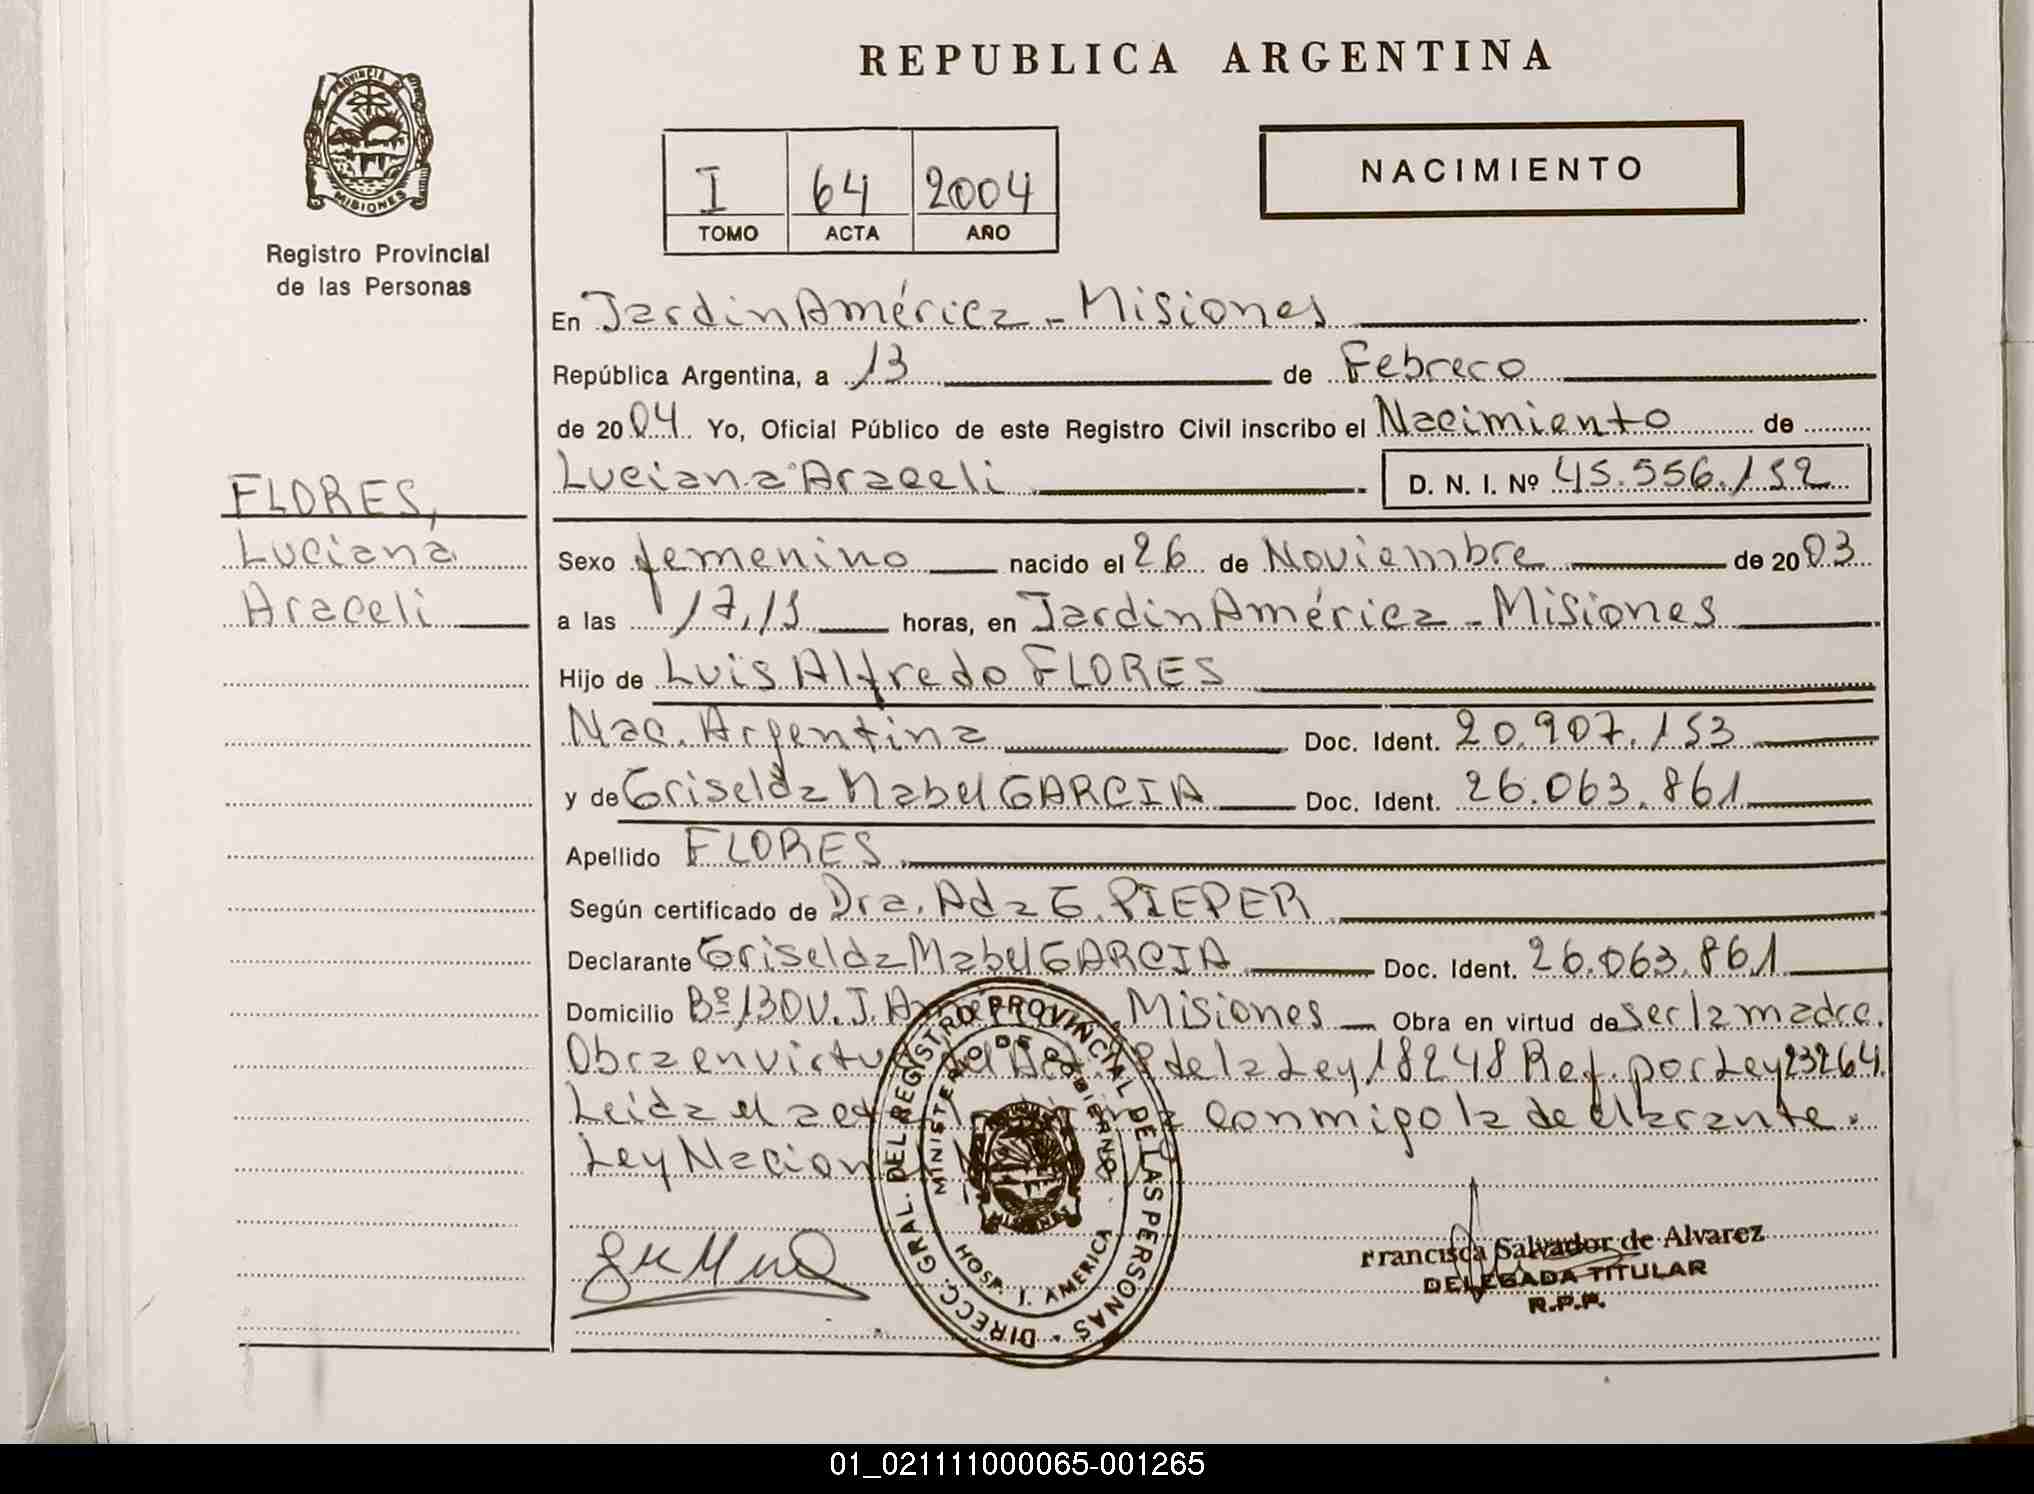 REPUBLICA ARGENTINA
PROVINCIA DE
MISIONES
Registro Provincial
de las Personas
I 64 2004
TOMO ACTA AÑO
NACIMIENTO
En Jardin América - Misiones
República Argentina, a 13 de Febrero
de 2004. Yo, Oficial Público de este Registro Civil inscribo el Nacimiento de
Luciana Araceli D. N. I. Nº 45.556.152
FLORES,
Luciana
Araceli
Sexo femenino nacido el 26 de Noviembre de 2003
a las 17,15 horas, en Jardin América - Misiones
Hijo de Luis Alfredo FLORES
Nac. Argentina Doc. Ident. 20.907.153
y de Griselda Mabel GARCIA Doc. Ident. 26.063.861
Apellido FLORES
Según certificado de Dra. Ada G. PIEPER
Declarante Griselda Mabel GARCIA Doc. Ident. 26.063.861
Domicilio Bº 130 V. J. América, Misiones Obra en virtud de ser la madre.
Obra en virtud del de la Ley 18248 Ref. por Ley 23264.
Leida el acta la firma conmigo la declarante.
Ley Nacional
DIRECC. GRAL. DEL REGISTRO PROVINCIAL DE LAS PERSONAS
MINISTERIO DE GOBIERNO
MISIONES
HOSP. J. AMERICA
Francisca Salvador de Alvarez
DELEGADA TITULAR
R.P.P.
01_021111000065-001265